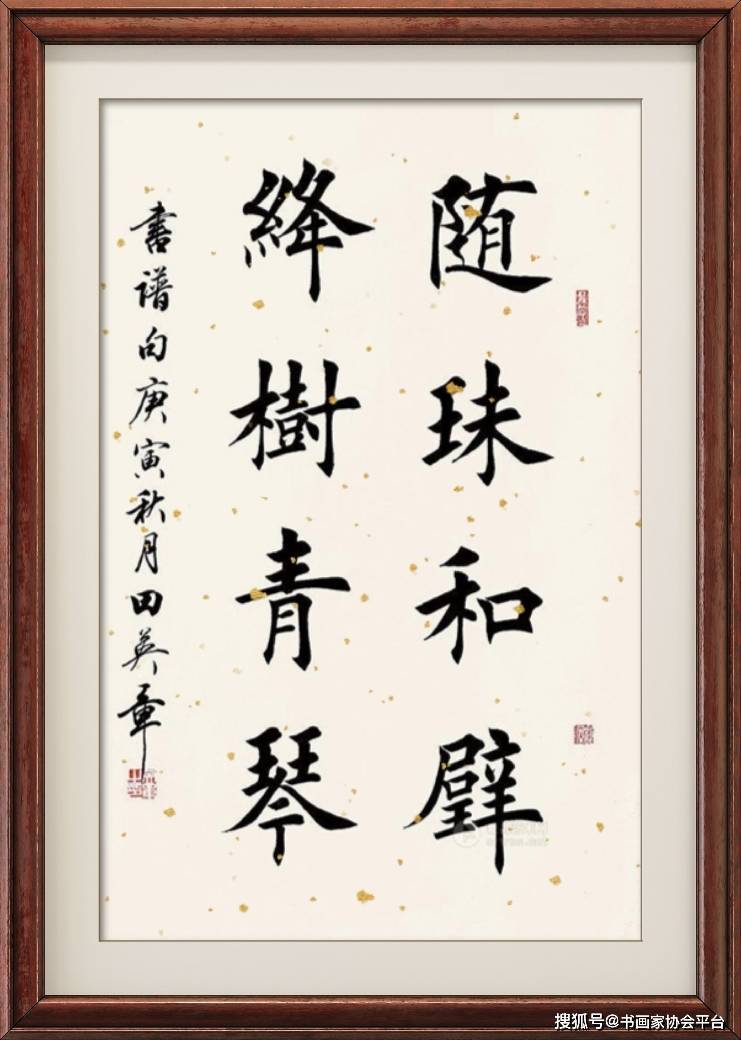 随珠和璧
絳樹青琴
書譜句庚寅秋月田英章
搜狐号@书画家协会平台